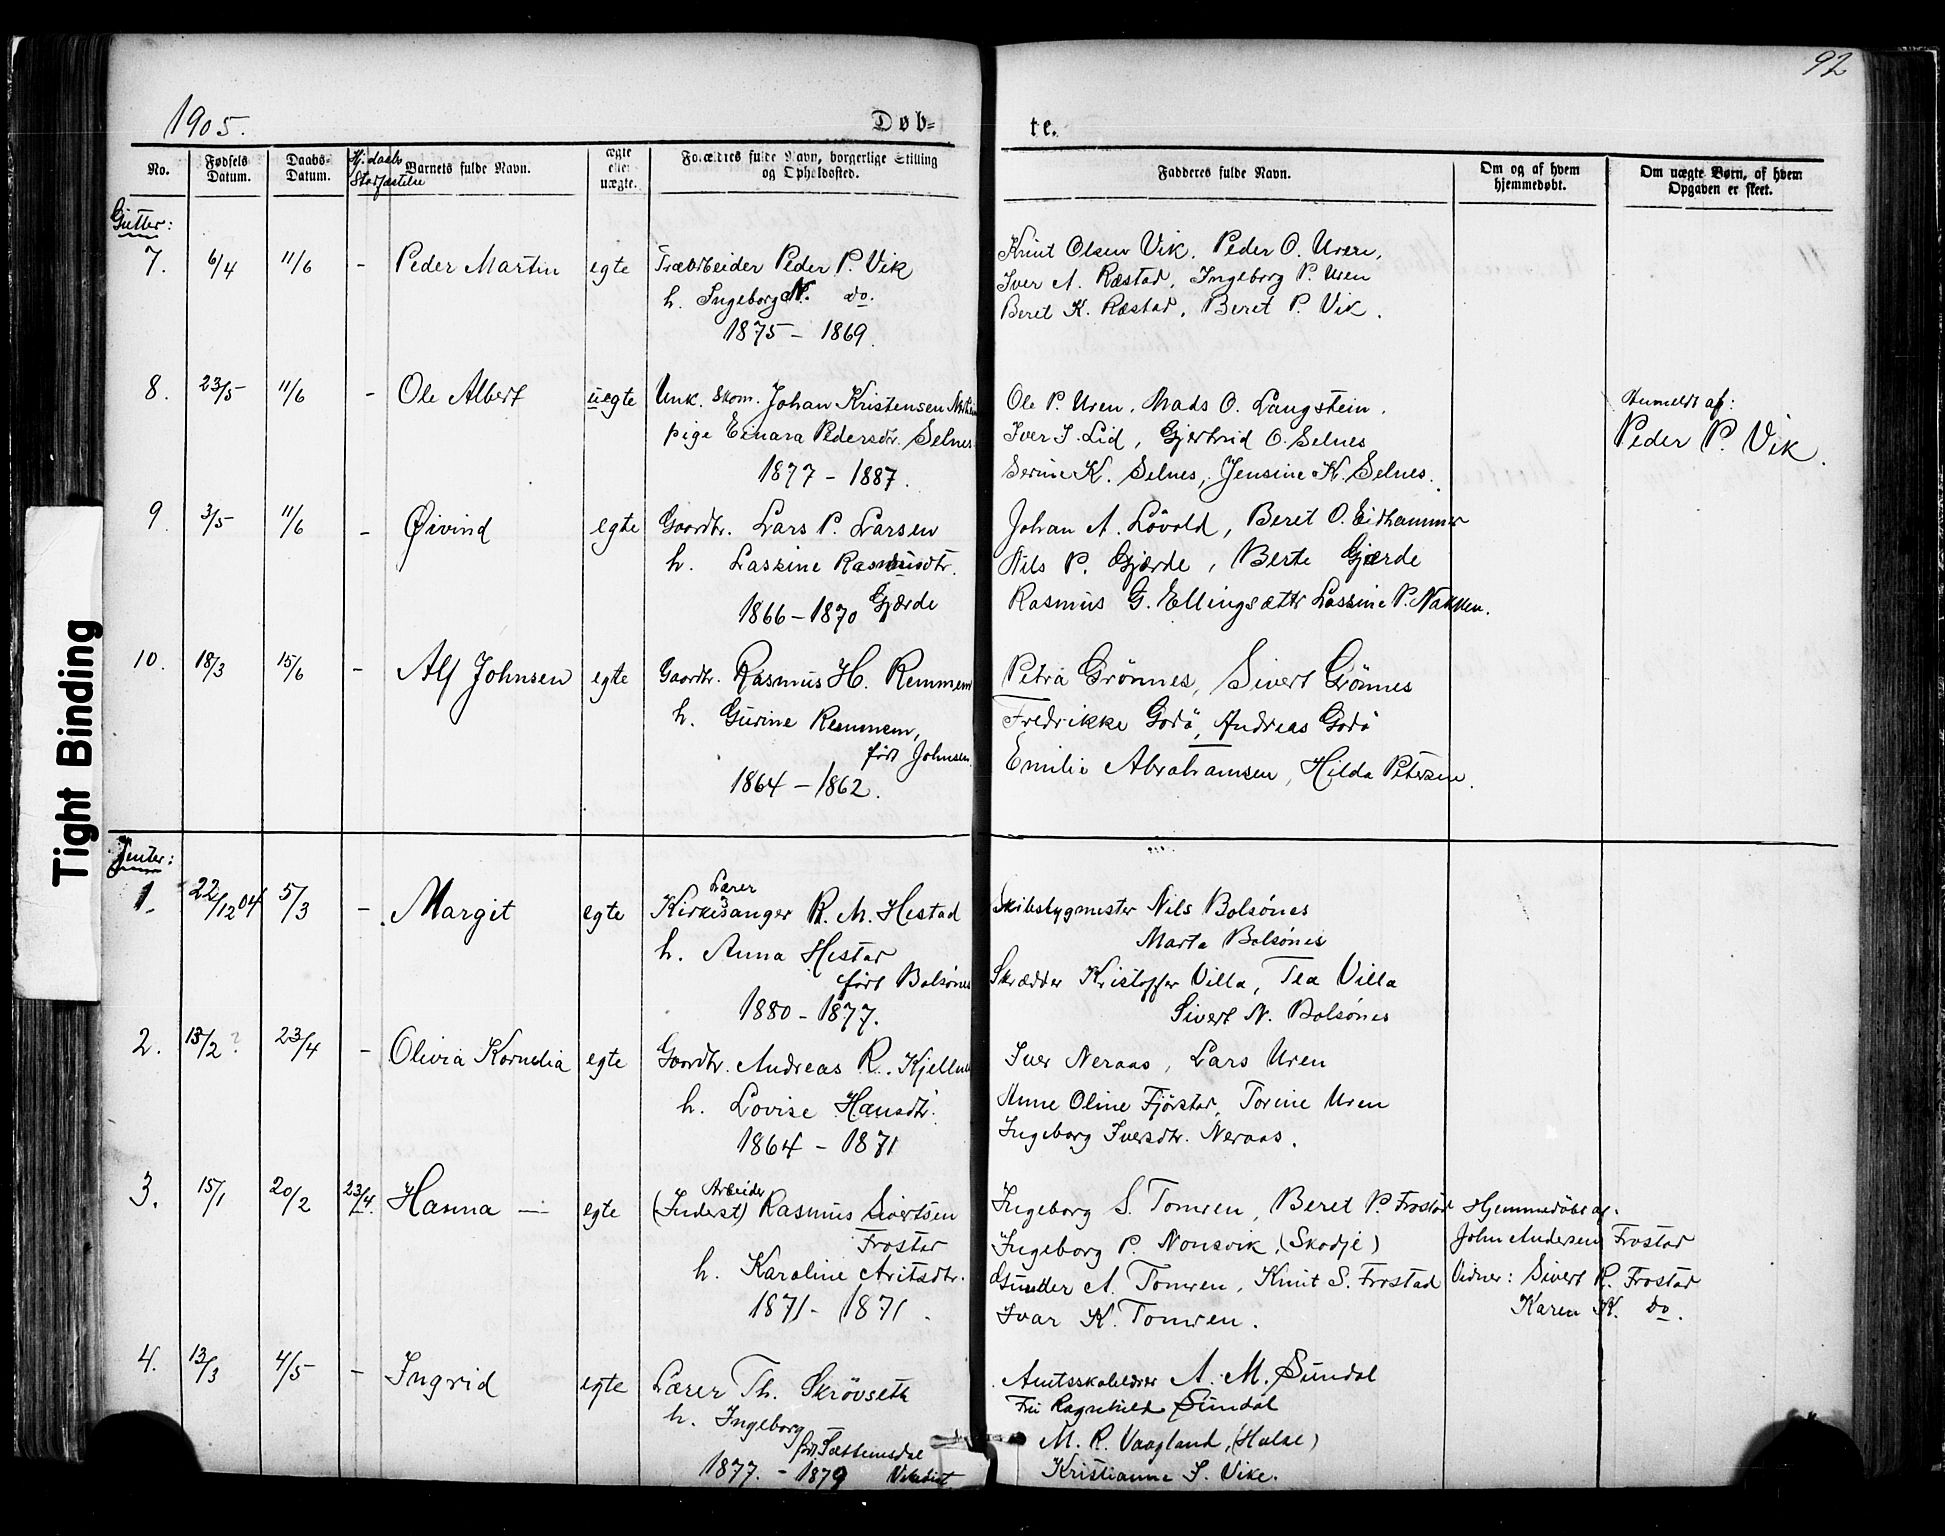 92
1905.
Døb-
te.
No.
Fødsels Datum.
Daabs-Datum.
Hj. daabs Stadfæstelse
Barnets fulde Navn.
ægte eller uægte.
Forældres fulde Navn, borgerlige Stilling og Opholdssted.
Fadderes fulde Navn.
Om og af hvem hjemmedøbt.
Om uægte Børn, af hvem Opgaven er skeet.
Gutter:
7. 6/4 11/6 - Peder Martin egte Træarbeider Peder P. Vik
h. Ingeborg N. do.
1875 - 1869.
Knut Olsen Vik, Peder O. Uren,
Iver A. Ræstad, Ingeborg P. Uren
Beret K. Ræstad, Beret P. Vik.
8. 23/5 11/6 - Ole Albert uegte Unk. Skom. Johan Kristensen
pige Einara Pedersdr. Selnes
1877 - 1887.
Ole P. Uren, Mads O. Langstein,
Iver I. Lid, Gjertrud O. Selnes
Serine K. Selnes, Jensine K. Selnes.
Anmeldt af:
Peder P. Vik.
9. 3/5 11/6 - Øivind egte Gaardbr. Lars P. Larsen
h. Lassine Rasmusdtr.
Gjærde
1866 - 1870
Johan A. Løvold, Beret O. Eidhammer
Nils P. Gjærde, Berte Gjærde
Rasmus G. Ellingsæter Lassine P. Nakken.
10. 18/3 15/6 - Alf Johnsen egte Gaardbr. Rasmus H. Remmem
h. Gurine Remmem,
født Johnsen.
1864 - 1862.
Petra Grönnes, Sivert Grönnes
Fredrikke Godö, Andreas Godö
Emilie Abrahamsen, Hilda Petersen.
Jenter:
1. 22/12 04 5/3 - Margit egte Lærer
Kirkesanger R. M. Hestad
h. Anna Hestad
født Bolsönes
1880 - 1877.
Skibsbygmester Nils Bolsönes
Marta Bolsönes
Skrædder Kristoffer Villa, Tea Villa
Sivert N. Bolsönes
2. 13/2 ? 23/4 - Olivia Kornelia egte Gaardbr. Andreas R. Kjellnes
h. Lovise Hansdtr.
1864 - 1871
Iver Neraas, Lars Uren
Anne Oline Fjörstad, Torine Uren
Ingeborg Iversdtr. Neraas.
3. 15/1 20/2 23/4. Hanna - egte Arbeider
(Inderst) Rasmus Sivertsen
Frostad
h. Karoline Aritsdtr.
1871 - 1871.
Ingeborg S. Tomren, Beret P. Frostad
Ingeborg P. Nonsvik, (Skodje)
Gunder A. Tomren, Knut S. Frostad
Ivar K. Tomren.
Hjemmedöbt af.
John Andersen Frostad
Vidner: Sivert R. Frostad
Karen K. do.
4. 13/3 4/5 - Ingrid egte Lærer Th. Skrövseth
h. Ingeborg
født Sættemsdal
1877. - 1879
Amtsskolelærer A. M. Sundal
Fru Ragnhild Sundal
M. R. Vaagland, (Halse)
Kristianne I. Vike.
Tight Binding